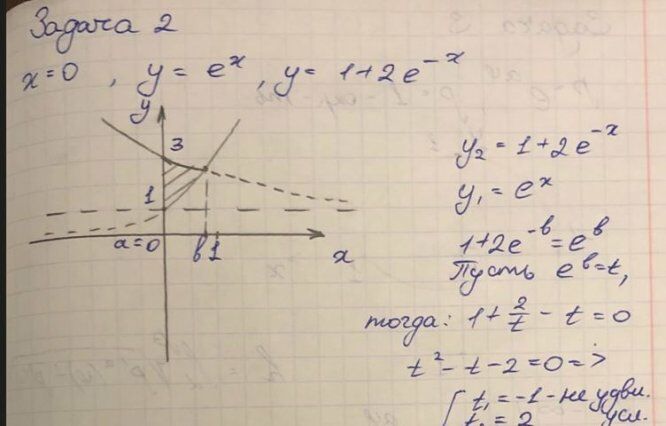 Задача 2
x=0 , y = e^x , y = 1+2e^-x
y
3
1
a=0
в 1
x
y₂ = 1+2e^-x
y₁ = e^x
1+2e^-в = e^в
Пусть e^в = t,
тогда: 1 + 2/t - t = 0
t² - t - 2 = 0 =>
[ t₁ = -1 - не удвл.
t₂ = 2 усл.